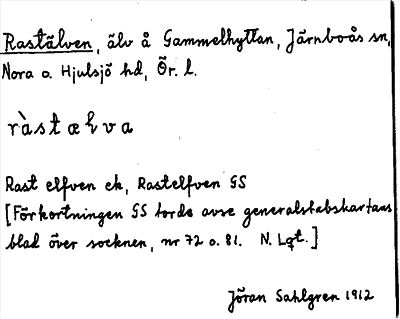 Rastälven, älv å Gammelhyttan, Järnboås sn,
Nora o. Hjulsjö hd, Ör. l.
ràstælva
Rast elfven ek, Rastelfven GS
[Förkortningen GS torde avse generalstabskartans
blad över socknen, nr 72 o. 81. N. Lgt.]
Jöran Sahlgren 1912